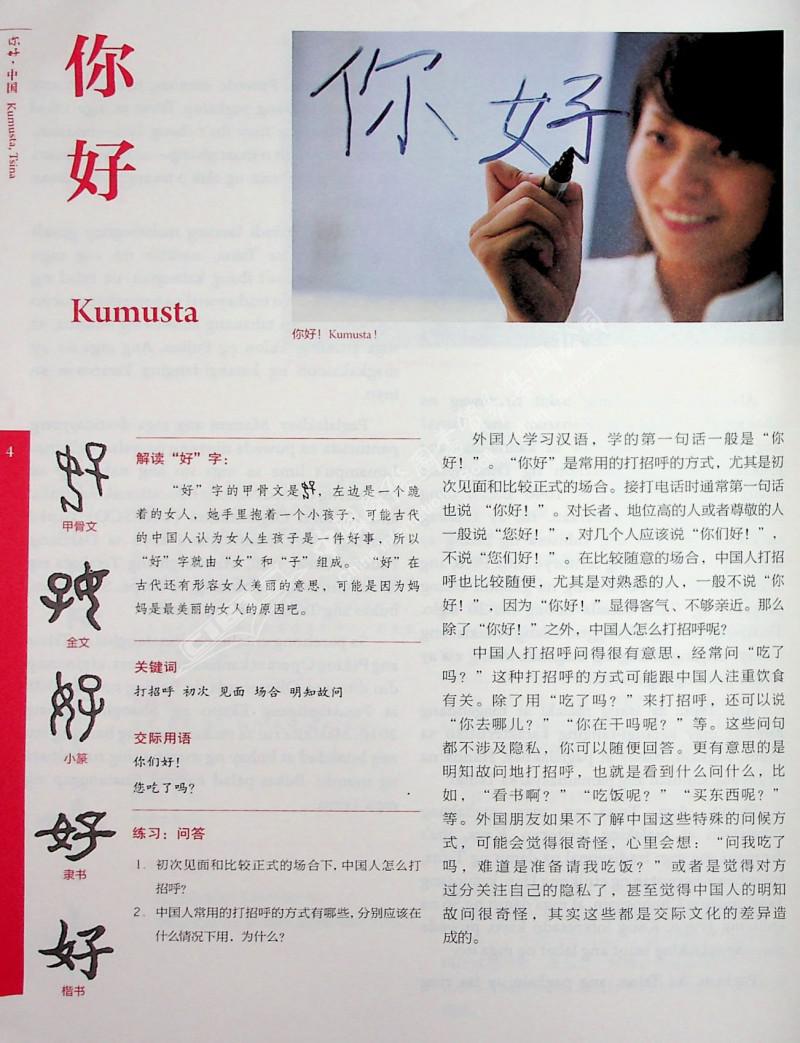 你好·中国 Kumusta, Tsina
你
好
Kumusta
你好
你好！Kumusta！
4
甲骨文
金文
小篆
隶书
楷书
解读“好”字：
“好”字的甲骨文是，左边是一个跪
着的女人，她手里抱着一个小孩子，可能古代
的中国人认为女人生孩子是一件好事，所以
“好”字就由“女”和“子”组成。“好”在
古代还有形容女人美丽的意思，可能是因为妈
妈是最美丽的女人的原因吧。
关键词
打招呼 初次 见面 场合 明知故问
交际用语
你们好！
您吃了吗？
练习：问答
1. 初次见面和比较正式的场合下，中国人怎么打
招呼？
2. 中国人常用的打招呼的方式有哪些，分别应该在
什么情况下用，为什么？
外国人学习汉语，学的第一句话一般是“你
好！”。“你好”是常用的打招呼的方式，尤其是初
次见面和比较正式的场合。接打电话时通常第一句话
也说“你好！”。对长者、地位高的人或者尊敬的人
一般说“您好！”，对几个人应该说“你们好！”，
不说“您们好！”。在比较随意的场合，中国人打招
呼也比较随便，尤其是对熟悉的人，一般不说“你
好！”，因为“你好！”显得客气、不够亲近。那么
除了“你好！”之外，中国人怎么打招呼呢？
中国人打招呼问得很有意思，经常问“吃了
吗？”这种打招呼的方式可能跟中国人注重饮食
有关。除了用“吃了吗？”来打招呼，还可以说
“你去哪儿？”“你在干吗呢？”等。这些问句
都不涉及隐私，你可以随便回答。更有意思的是
明知故问地打招呼，也就是看到什么问什么，比
如，“看书啊？”“吃饭呢？”“买东西呢？”
等。外国朋友如果不了解中国这些特殊的问候方
式，可能会觉得很奇怪，心里会想：“问我吃了
吗，难道是准备请我吃饭？”或者是觉得对方
过分关注自己的隐私了，甚至觉得中国人的明知
故问很奇怪，其实这些都是交际文化的差异造
成的。